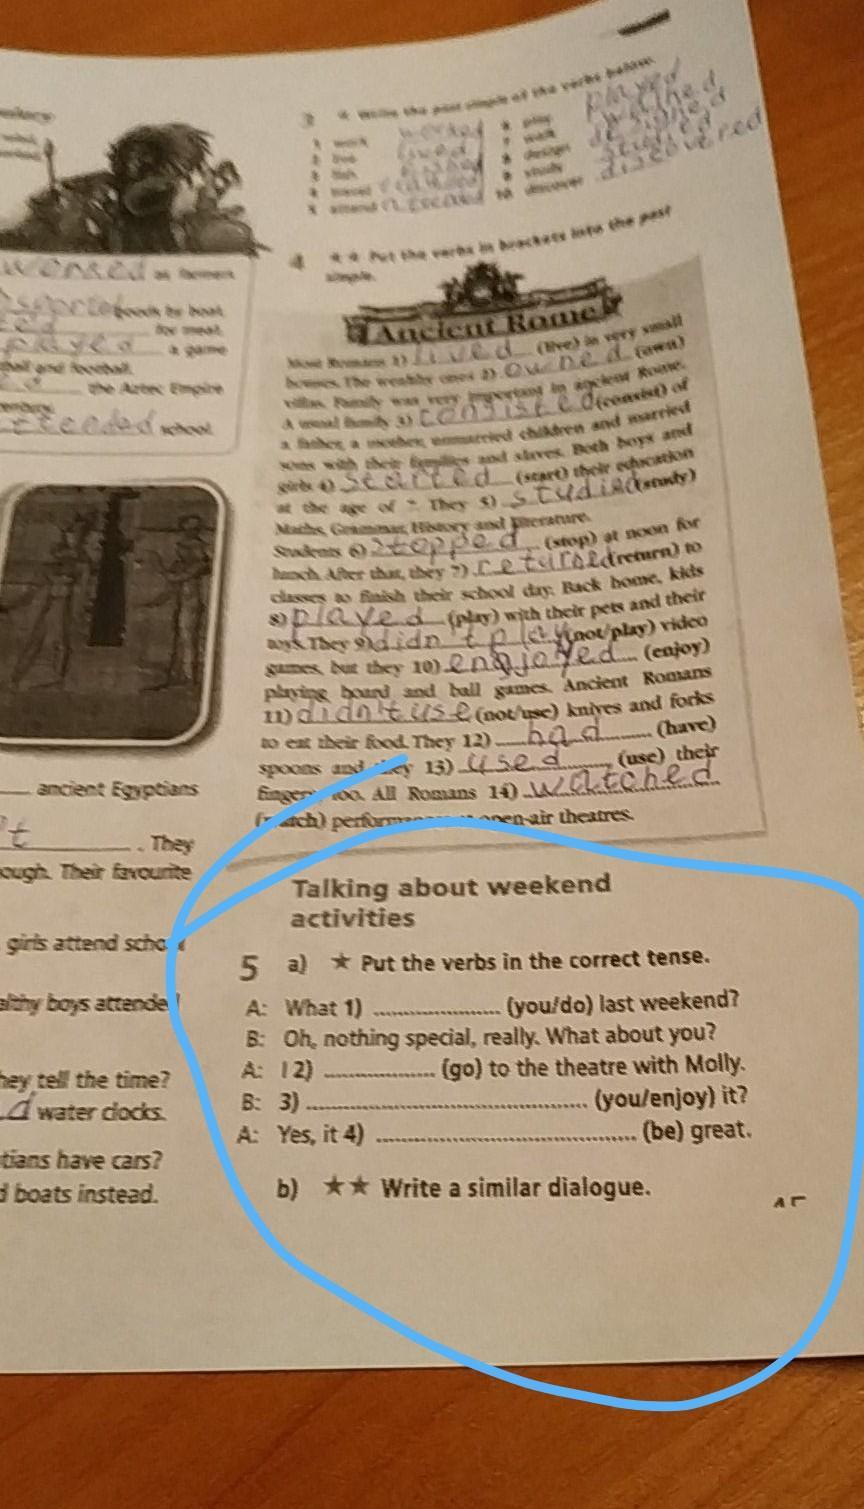 3 Write the past simple of the verbs below.
1 work worked 6 play played
2 live lived 7 walk walked
3 fish fished 8 design designed
4 travel 9 study studied
5 attend 10 discover discovered
worked as farmers
goods by boat.
for meat.
played a game
ball and football.
the Aztec Empire
century.
attended school.
ancient Egyptians
't . They
ough. Their favourite
girls attend school
althy boys attended
hey tell the time?
d water clocks.
tians have cars?
d boats instead.
4 ** Put the verbs in brackets into the past
simple.
Ancient Rome
Most Romans 1) lived (live) in very small
houses. The wealthy ones 2) owned (own)
villas. Family was very important in ancient Rome.
A usual family 3) consisted (consist) of
a father, a mother, unmarried children and married
sons with their families and slaves. Both boys and
girls 4) started (start) their education
at the age of 7. They 5) studied (study)
Maths, Grammar, History and Literature.
Students 6) stopped (stop) at noon for
lunch. After that, they 7) returned (return) to
classes to finish their school day. Back home, kids
8) played (play) with their pets and their
toys. They 9) didn't play (not/play) video
games, but they 10) enjoyed (enjoy)
playing board and ball games. Ancient Romans
11) didn't use (not/use) knives and forks
to eat their food. They 12) had (have)
spoons and they 13) used (use) their
fingers, too. All Romans 14) watched
(watch) performances at open-air theatres.
Talking about weekend
activities
5 a) ★ Put the verbs in the correct tense.
A: What 1) .................... (you/do) last weekend?
B: Oh, nothing special, really. What about you?
A: I 2) .................. (go) to the theatre with Molly.
B: 3) ............................................. (you/enjoy) it?
A: Yes, it 4) .......................................... (be) great.
b) ★★ Write a similar dialogue.